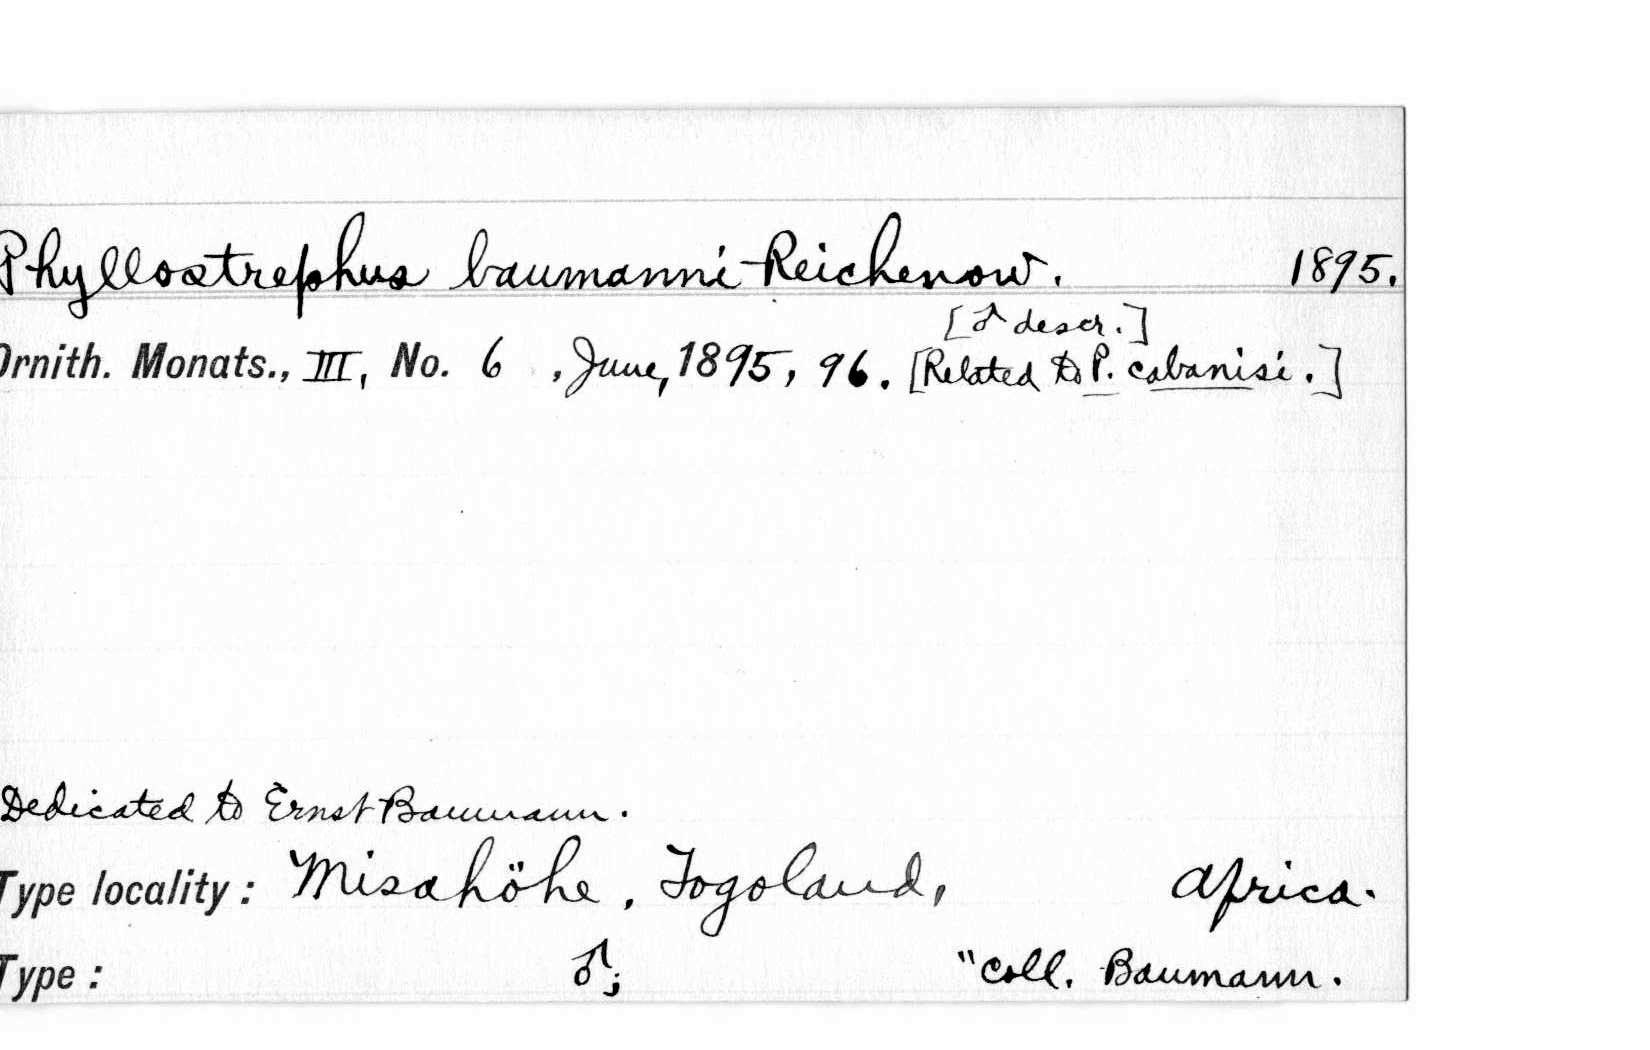 Phyllostrephus baumanni Reichenow. 1895.
[♂ descr.]
Ornith. Monats., III, No. 6 , June, 1895, 96. [Related to P. cabanisi.]
Dedicated to Ernst Baumann.
Type locality: Misahöhe, Togoland, Africa.
Type: ♂; "Coll. Baumann.